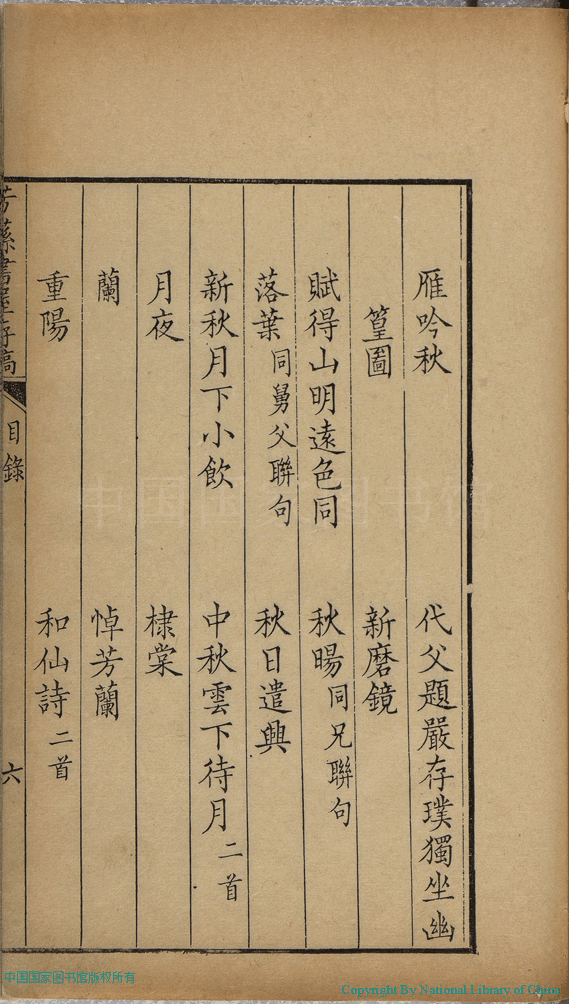 雁吟秋　代父題嚴存璞獨坐幽
篁圖　新磨鏡
賦得山明遠色同　秋暘同兄聯句
落葉同舅父聯句　秋日遣興
新秋月下小飲　中秋雲下待月二首
月夜　棣棠
蘭　悼芳蘭
重陽　和仙詩二首
書室存稿　目錄　六
中国国家图书馆
中国国家图书馆版权所有
Copyright By National Library of China